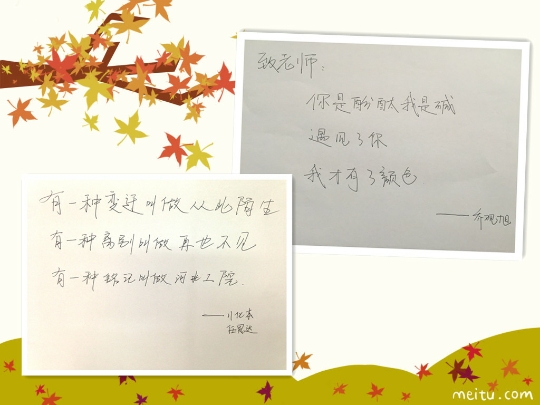 致老师：
你是酚酞我是碱
遇见了你
我才有了颜色
——乔观旭
有一种变迁叫做从此陌生
有一种离别叫做再也不见
有一种铭记叫做河北工院
——川化本
meitu.com